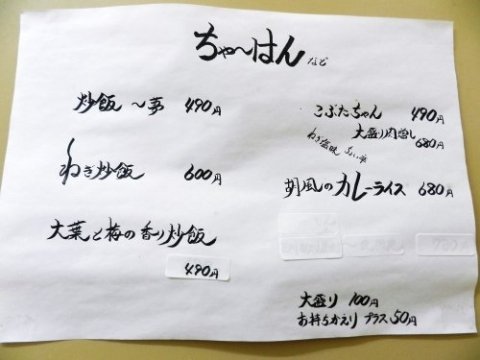 ちゃ〜はん など
炒飯 〜夢 490円
ねぎ炒飯 600円
大葉と梅の香り炒飯
490円
こぶたちゃん 490円
大盛り肉増し
680円
ねぎ塩味
胡風のカレーライス 680円
大盛り 100円
お持ちかえり プラス50円